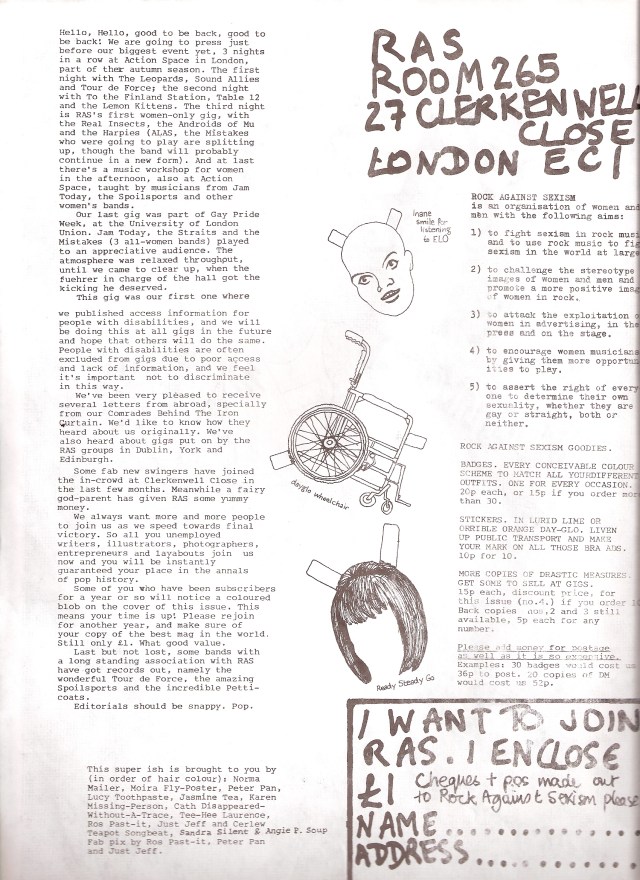 Hello, Hello, good to be back, good to
be back! We are going to press just
before our biggest event yet, 3 nights
in a row at Action Space in London,
part of their autumn season. The first
night with The Leopards, Sound Allies
and Tour de Force; the second night
with To the Finland Station, Table 12
and the Lemon Kittens. The third night
is RAS's first women-only gig, with
the Real Insects, the Androids of Mu
and the Harpies (ALAS, the Mistakes
who were going to play are splitting
up, though the band will probably
continue in a new form). And at last
there's a music workshop for women
in the afternoon, also at Action
Space, taught by musicians from Jam
Today, the Spoilsports and other
women's bands.
Our last gig was part of Gay Pride
Week, at the University of London
Union. Jam Today, the Straits and the
Mistakes (3 all-women bands) played
to an appreciative audience. The
atmosphere was relaxed throughput,
until we came to clear up, when the
fuehrer in charge of the hall got the
kicking he deserved.
This gig was our first one where
we published access information for
people with disabilities, and we will
be doing this at all gigs in the future
and hope that others will do the same.
People with disabilities are often
excluded from gigs due to poor access
and lack of information, and we feel
it's important not to discriminate
in this way.
We've been very pleased to receive
several letters from abroad, specially
from our Comrades Behind The Iron
Curtain. We'd like to know how they
heard about us originally. We've
also heard about gigs put on by the
RAS groups in Dublin, York and
Edinburgh.
Some fab new swingers have joined
the in-crowd at Clerkenwell Close in
the last few months. Meanwhile a fairy
god-parent has given RAS some yummy
money.
We always want more and more people
to join us as we speed towards final
victory. So all you unemployed
writers, illustrators, photographers,
entrepreneurs and layabouts join us
now and you will be instantly
guaranteed your place in the annals
of pop history.
Some of you who have been subscribers
for a year or so will notice a coloured
blob on the cover of this issue. This
means your time is up! Please rejoin
for another year, and make sure of
your copy of the best mag in the world.
Still only £1. What good value.
Last but not lost, some bands with
a long standing association with RAS
have got records out, namely the
wonderful Tour de Force, the amazing
Spoilsports and the incredible Petti-
coats.
Editorials should be snappy. Pop.
This super ish is brought to you by
(in order of hair colour): Norma
Mailer, Moira Fly-Poster, Peter Pan,
Lucy Toothpaste, Jasmine Tea, Karen
Missing-Person, Cath Disappeared-
Without-A-Trace, Tee-Hee Laurence,
Ros Past-it, Just Jeff and Cerlew
Teapot Songbeat, Sandra Silent & Angie P. Soup
Fab pix by Ros Past-it, Peter Pan
and Just Jeff.
Inane
smile for
listening
to ELO
dayglo wheelchair
Ready Steady Go
RAS
ROOM 265
27 CLERKENWELL
CLOSE
LONDON EC1
ROCK AGAINST SEXISM
is an organisation of women and
men with the following aims:
1) to fight sexism in rock musi
and to use rock music to fig
sexism in the world at large
2) to challenge the stereotype
images of women and men and
promote a more positive imag
of women in rock.
3) to attack the exploitation o
women in advertising, in the
press and on the stage.
4) to encourage women musicians
by giving them more opportun
ities to play.
5) to assert the right of every
one to determine their own
sexuality, whether they are
gay or straight, both or
neither.
ROCK AGAINST SEXISM GOODIES.
BADGES. EVERY CONCEIVABLE COLOUR
SCHEME TO MATCH ALL YOURDIFFERENT
OUTFITS. ONE FOR EVERY OCCASION.
20p each, or 15p if you order mor
than 30.
STICKERS. IN LURID LIME OR
ORRIBLE ORANGE DAY-GLO. LIVEN
UP PUBLIC TRANSPORT AND MAKE
YOUR MARK ON ALL THOSE BRA ADS.
10p for 10.
MORE COPIES OF DRASTIC MEASURES.
GET SOME TO SELL AT GIGS.
15p each, discount price, for
this issue (no.4.) if you order 10
Back copies nos,2 and 3 still
available, 5p each for any
number.
Please add money for postage
as well as it is so expensive.
Examples: 30 badges would cost us
36p to post. 20 copies of DM
would cost us 52p.
I WANT TO JOIN
RAS. I ENCLOSE
£1 Cheques + p.os made out
to Rock Against Sexism please
NAME..............
ADDRESS...........